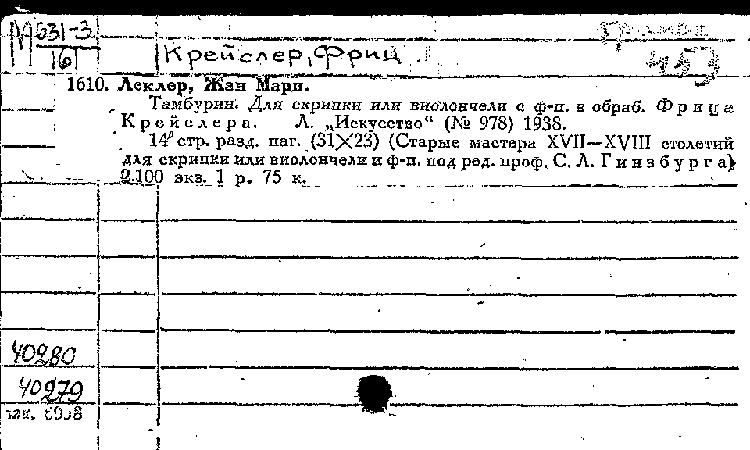 М631-3
16
Крейслер, Фриц
453
1610. Леклер, Жан Мари.
Тамбурин. Для скрипки или виолончели с ф-п. в обраб. Фрица
Крейслера. Л. „Искусство“ (№ 978) 1938.
14 стр. разд. паг. (31×23) (Старые мастера XVII—XVIII столетий
для скрипки или виолончели и ф-п. под ред. проф. С. Л. Гинзбурга)
2.100 экз. 1 р. 75 к.
40280
40279
зак.